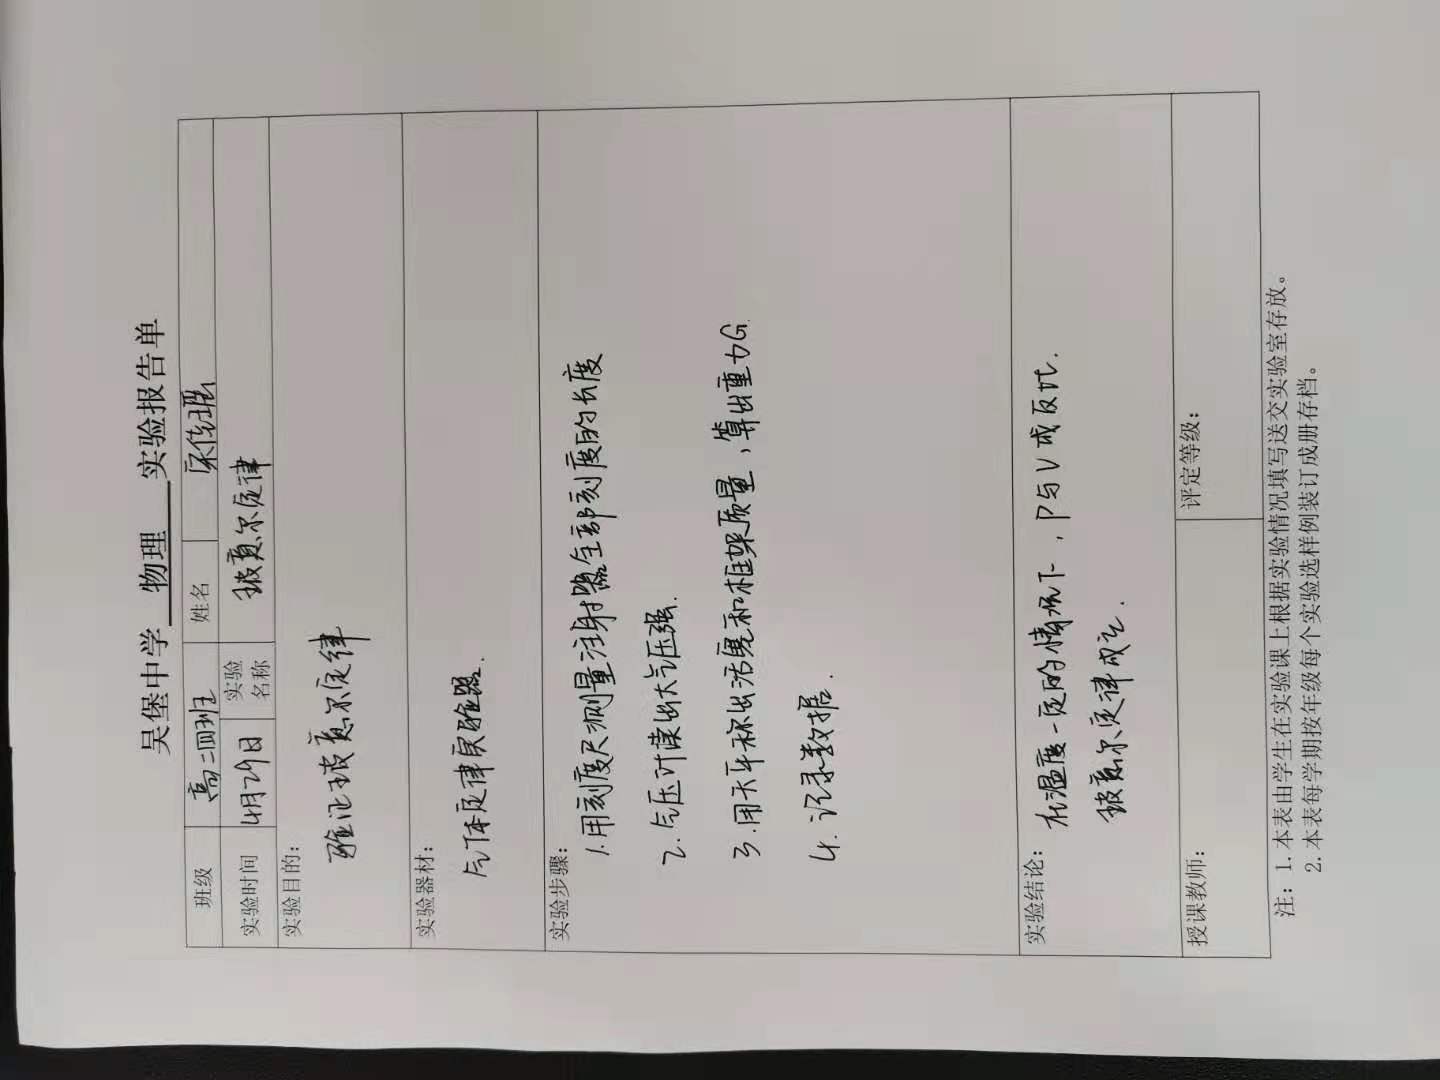 吴堡中学 物理 实验报告单
班级 高二四班 姓名
实验时间 4月29日 实验名称 玻意尔定律
实验目的：
验证玻意尔定律
实验器材：
气体定律实验器.
实验步骤：
1.用刻度尺测量注射器全部刻度的长度
2.气压计读出大气压强.
3.用天平称出活塞和框架质量，算出重力G.
4.记录数据.
实验结论：
在温度一定的情况下，P与V成反比.
玻意尔定律成立.
授课教师： 评定等级：
注：1.本表由学生在实验课上根据实验情况填写送交实验室存放。
2.本表每学期按年级每个实验选样例装订成册存档。